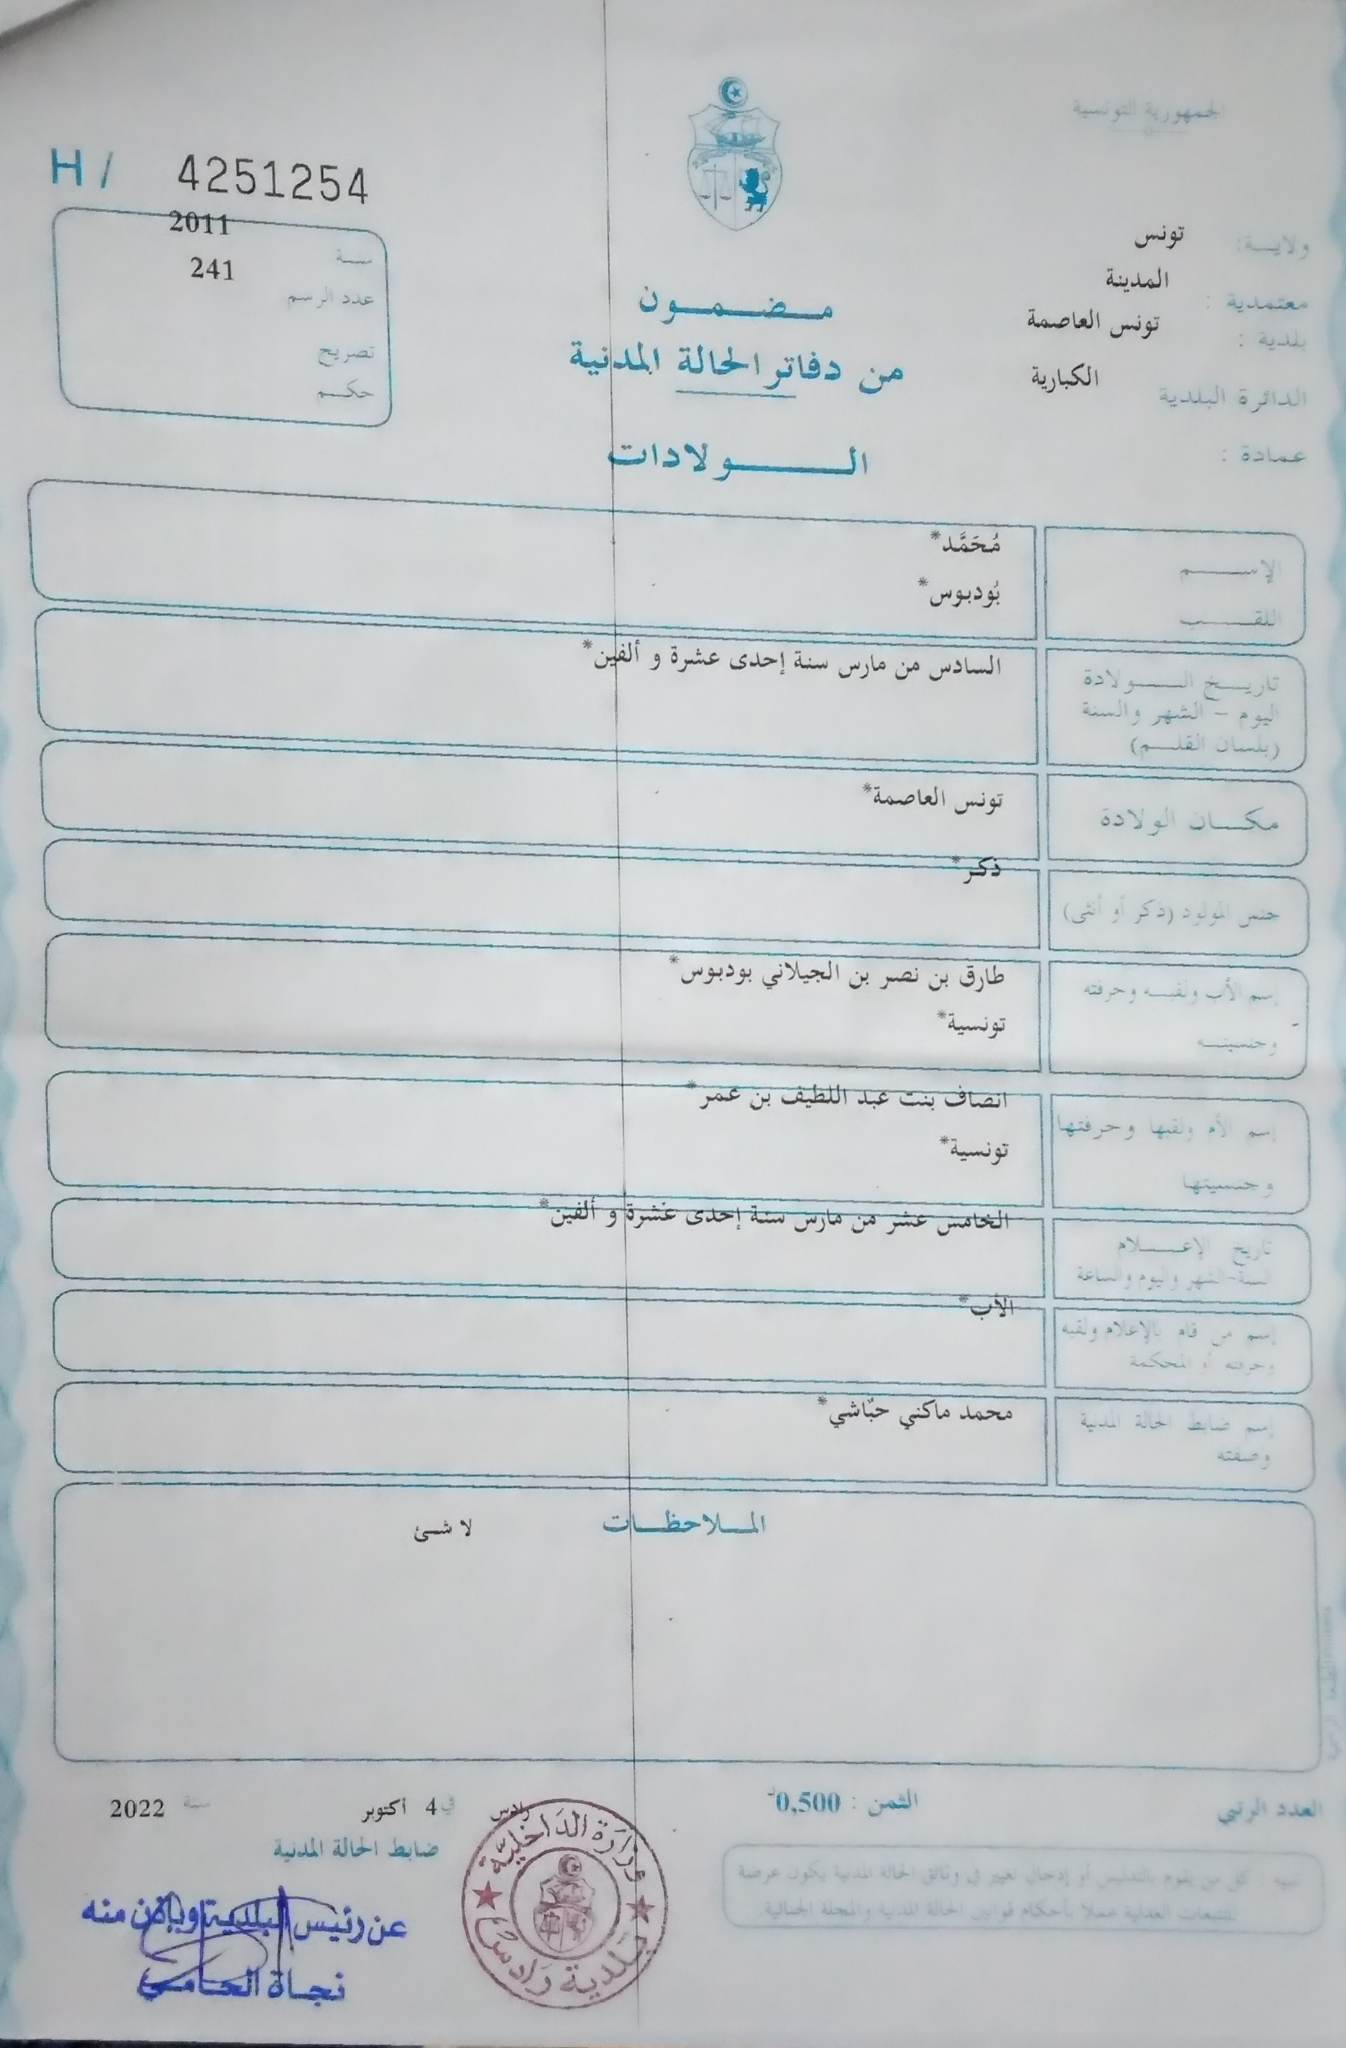 الجمهورية التونسية
H / 4251254
ولايـــة: تونس
معتمدية : المدينة
بلدية : تونس العاصمة
الدائرة البلدية الكبارية
عمادة :
سـنة 2011
عدد الرسم 241
تصريح
حكـم
مــضــمــون
من دفاتر الحالة المدنية
الـــــولادات
الإســـــم مُحَمَّد*
اللقـــــب بُودبوس*
تاريــخ الـــولادة السادس من مارس سنة إحدى عشرة و ألفين*
اليوم - الشهر والسنة
(بلسان القلـــم)
مكــان الولادة تونس العاصمة*
جنس المولود (ذكر أو أنثى) ذكر*
إسم الأب ولقبــه وحرفته طارق بن نصر بن الجيلاني بودبوس*
وجنسيتـــه تونسية*
إسم الأم ولقبها وحرفتها انصاف بنت عبد اللطيف بن عمر*
وجنسيتها تونسية*
تاريخ الإعـــلام الخامس عشر من مارس سنة إحدى عشرة و ألفين*
السنة-الشهر واليوم والساعة
إسم من قام بالإعلام ولقبه الأب*
وحرفته أو المحكمة
إسم ضابط الحالة المدنية محمد ماكني حبّاشي*
وصفته
المــلاحظــات
لا شئ
العدد الرتبي
الثمن : 0,500د
رادس في 4 أكتوبر سنة 2022
ضابط الحالة المدنية
تنبيه : كل من يقوم بالتدليس أو إدخال تغيير في وثائق الحالة المدنية يكون عرضة
للتتبعات العدلية عملا بأحكام قوانين الحالة المدنية والمجلة الجنائية.
وزارة الداخليّة
بلدية رادس
عن رئيس البلدية وبإذن منه
نجاة الحامي